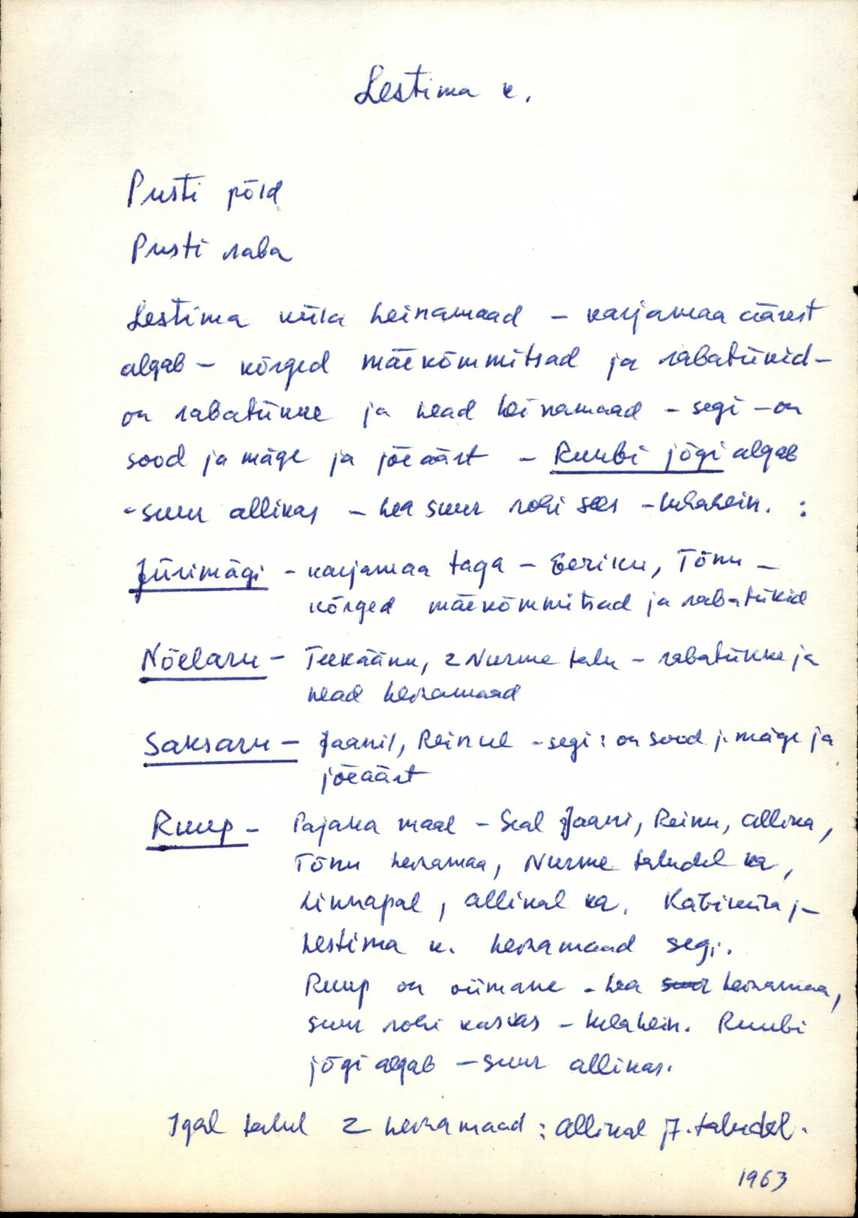 Lestima k.
Pusti põld
Pusti raba
Lestima küla heinamaad – karjamaa äärest
algab – kõrged mäekõmmitsad ja rabatükid –
on rabatükke ja head heinamaad – segi – on
sood ja mäge ja jõeäärt – Ruubi jõgi algab
– suur allikas – hea suur rohi sees – luhahein. :
Jürimägi – karjamaa taga – Eeriku, Tõnu –
kõrged mäekõmmitsad ja rabatükid
Nõelaru – Teekäänu, 2 Nurme talu – rabatükke ja
head heinamaad
Saksaru – Jaanil, Reinul – segi: on sood j. mäge ja
jõeäärt
Ruup – Pajaka maal – Seal Jaani, Reinu, Allika,
Tõnu heinamaa, Nurme taludel ka,
Linnapal, Allikal ka. Käbiküla j–
Lestima k. heinamaad segi.
Ruup on viimane – hea suur heinamaa,
suur rohi kasvas – luhahein. Ruubi
jõgi algab – suur allikas.
Igal talul 2 heinamaad : Allikal j. taludel.
1963